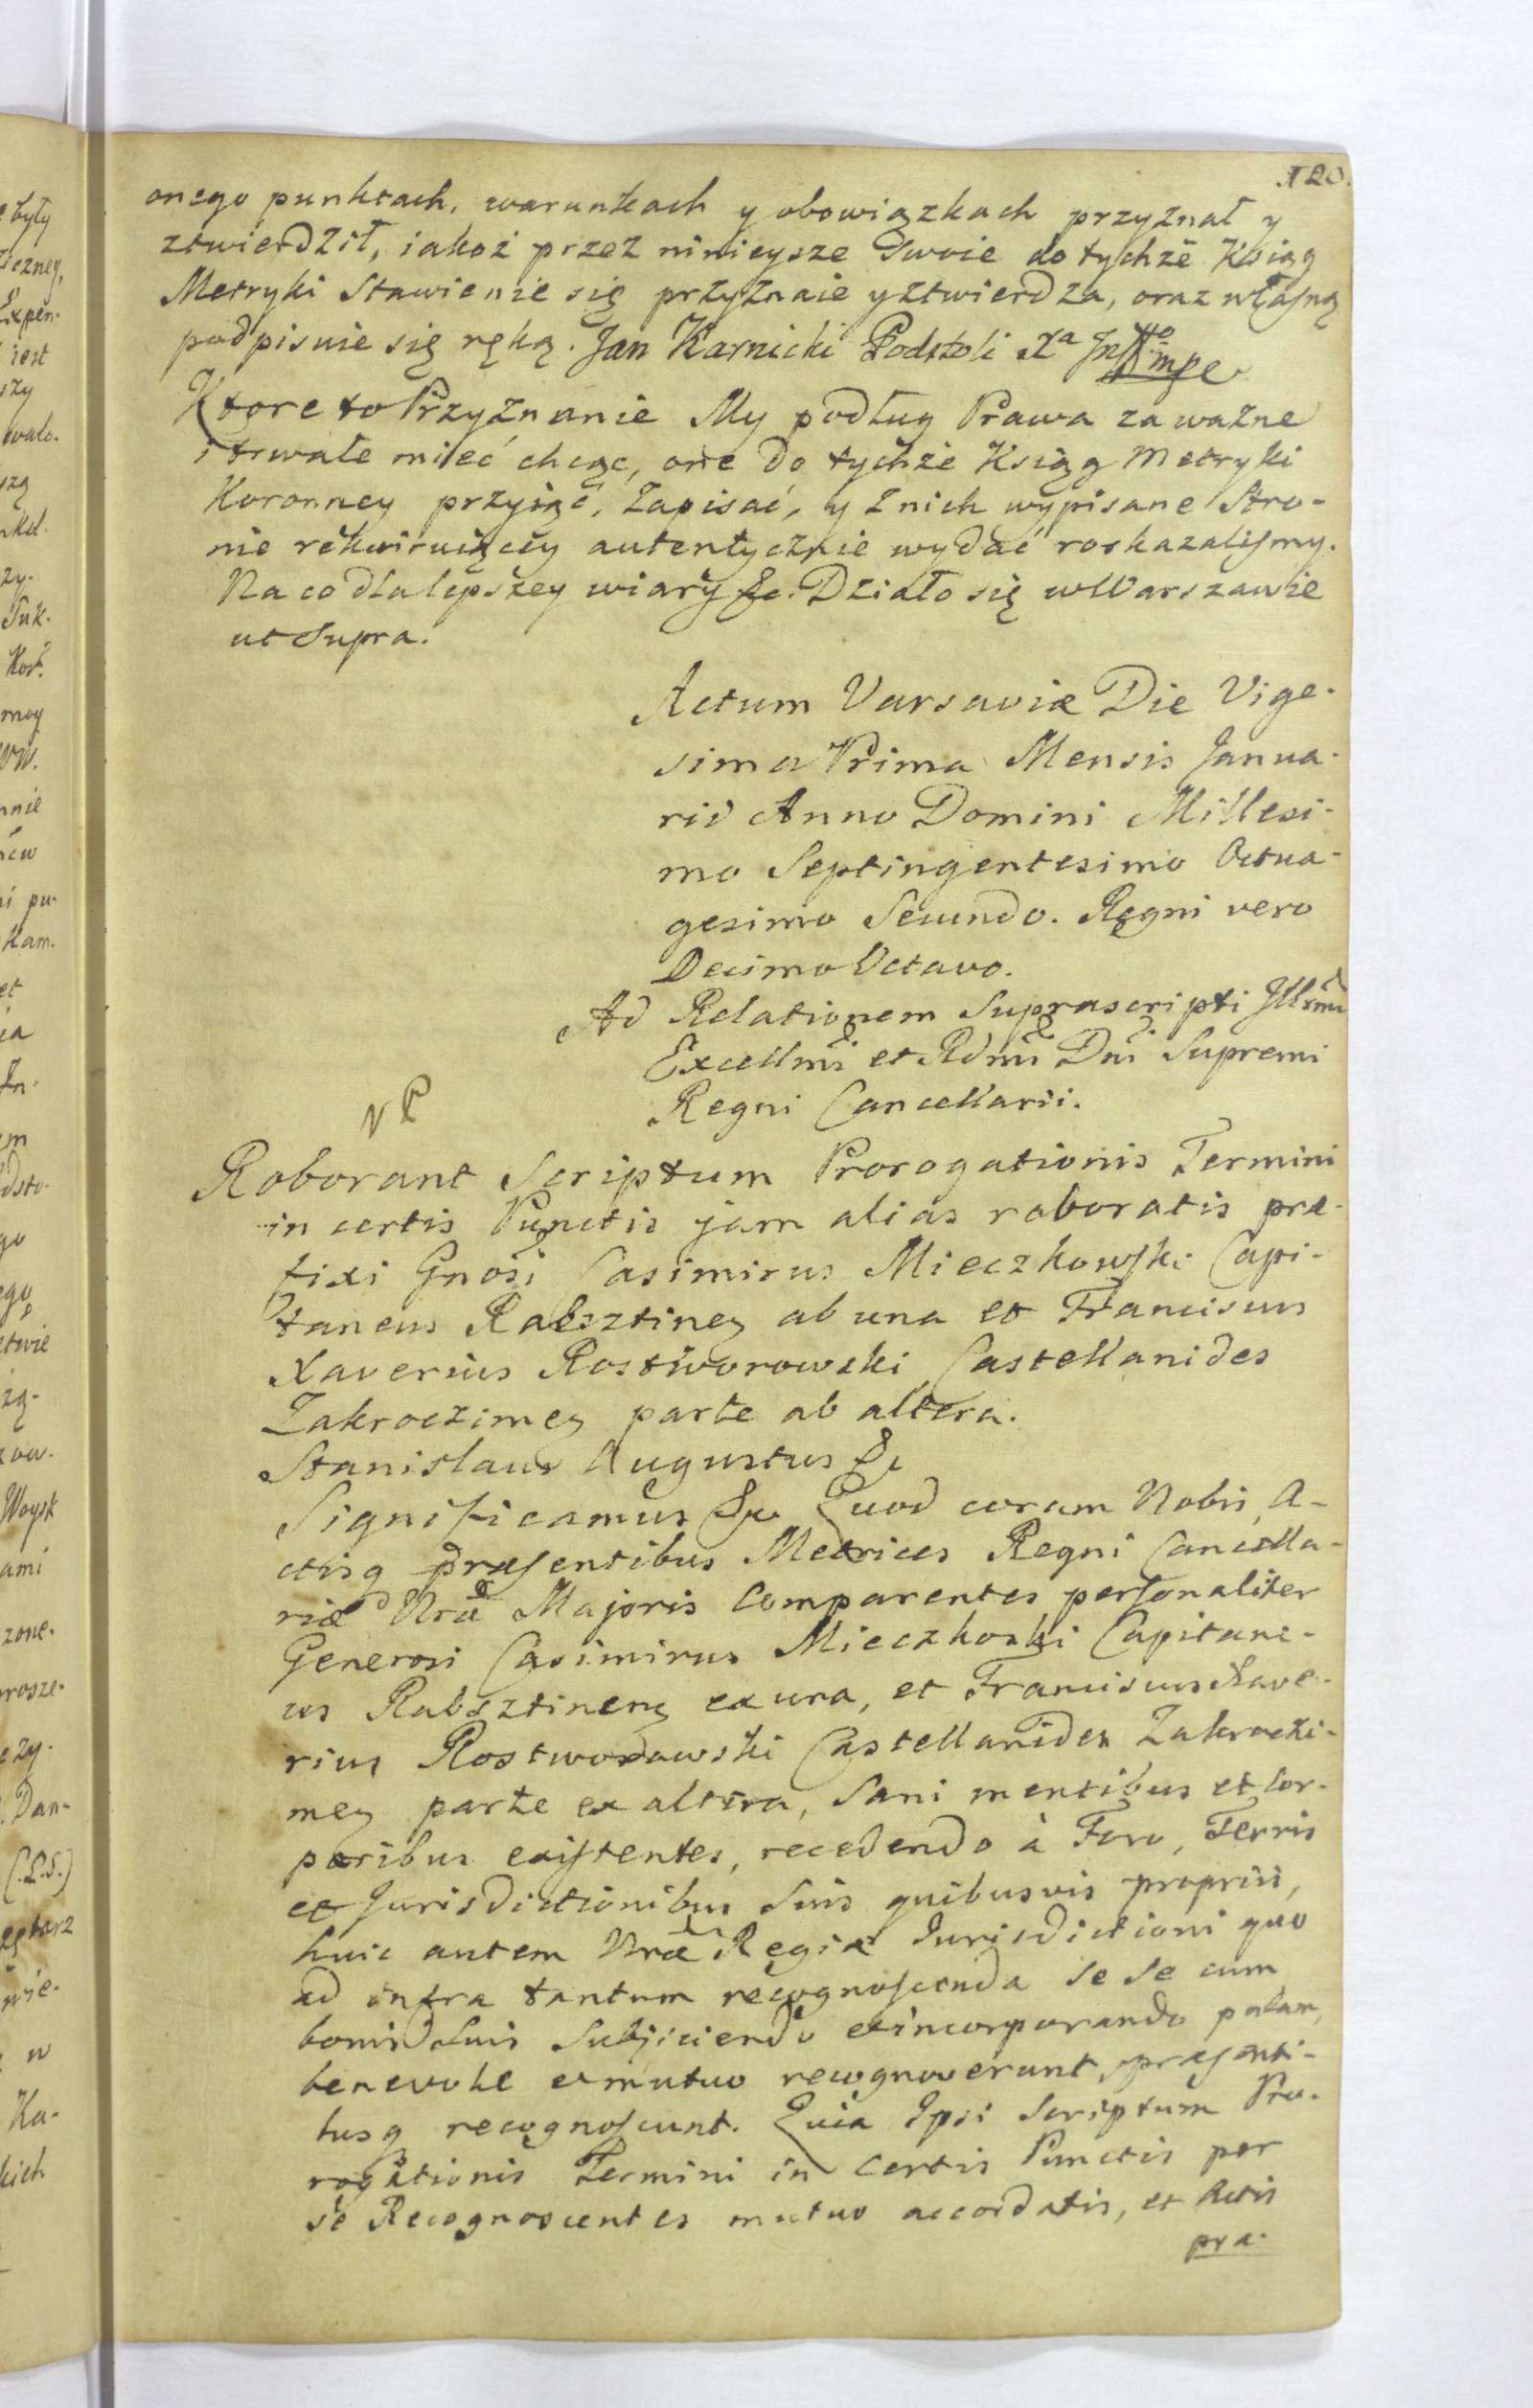 120.
onego punktach, warunkach y obowiązkach przyznał y
ztwierdził, iakoż przez ninieysze Swoie do tychże Xsiąg
Metryki Stawienie się przyznaie y ztwierdza, oraz własną
podpisuie się ręką. Jan Karnicki Podstoli Xa mpe
Ktore to Przyznanie My podług Prawa za ważne
i trwałe mieć chcąc, one do tychże Xsiąg Metryki
Koronney przyiąć, zapisać, y z nich wypisane Stro-
nie rekwiruiącey autentycznie wydać roskazalismy.
Na co dla lepszey wiary &c. Działo się w Warszawie
ut Supra.
Actum Varsaviæ Die Vige-
sima Prima Mensis Janua-
rii Anno Domini Millesi-
mo Septingentesimo Octua-
gesimo Secundo. Regni vero
Decimo Octavo.
Ad Relationem Suprascripti Illsmi
Excellmi et Rdmi Dni Supremi
Regni Cancellarii.
Roborant Scriptum Prorogationis Termini
in certis Punctis jam alias roboratis præ-
fixi Gnosi Casimirus Mieczkowski Capi-
taneus Rabsztineg ab una et Franciscus
Xaverius Rostworowski Castellanides
Zakroczimeg parte ab altera.
Stanislaus Augustus &c
Significamus &c Quod coram Nobis, A-
ctisq præsentibus Metrices Regni Cancella-
riæ Nræ Majoris Comparentes personaliter
Generosi Casimirus Mieczkoski Capitane-
us Rabsztineng ex una, et Franciscus Xave-
rius Rostworowski Castellanides Zakroczi-
meg parte ex altera, Sani mentibus et Cor-
poribus existentes, recedendo à Foro, Terris
et Jurisdictionibus Suis quibusvis propriis,
huic autem Nræ Regiæ Jurisdictioni quo
ad infra tantum recognoscenda se se cum
bonis Suis Subjiciendo et incorporando palam,
benevole et mutuo recognoverunt, præsenti-
busq recognoscunt. Quia Ipsi Scriptum Pro-
rogationis Termini in Certis Punctis per
se Recognoscentes mutuo accordatis, et Actis
pra-